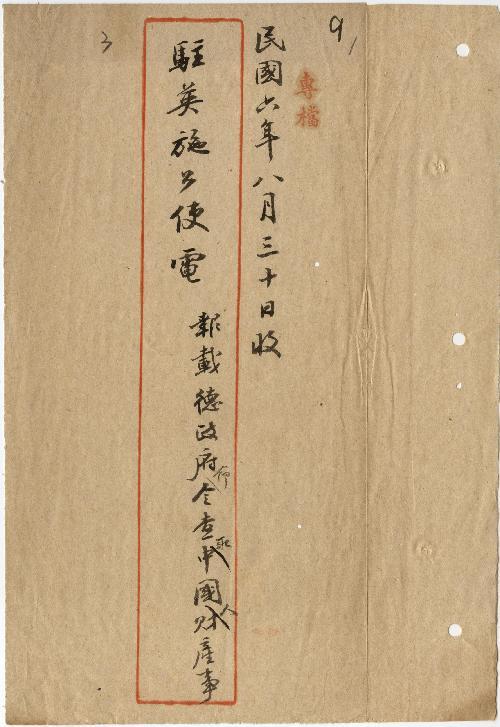 9/
專檔
民國六年八月三十日收
駐英施公使電
報載德政府令查取中國人財產事
3